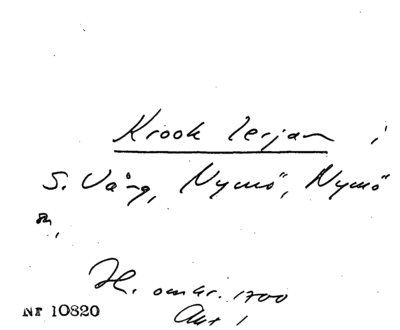 Krook Terjan i
S. Vång, Nymö, Nymö
sn,
H. omkr. 1700
Akt 1
NF 10820